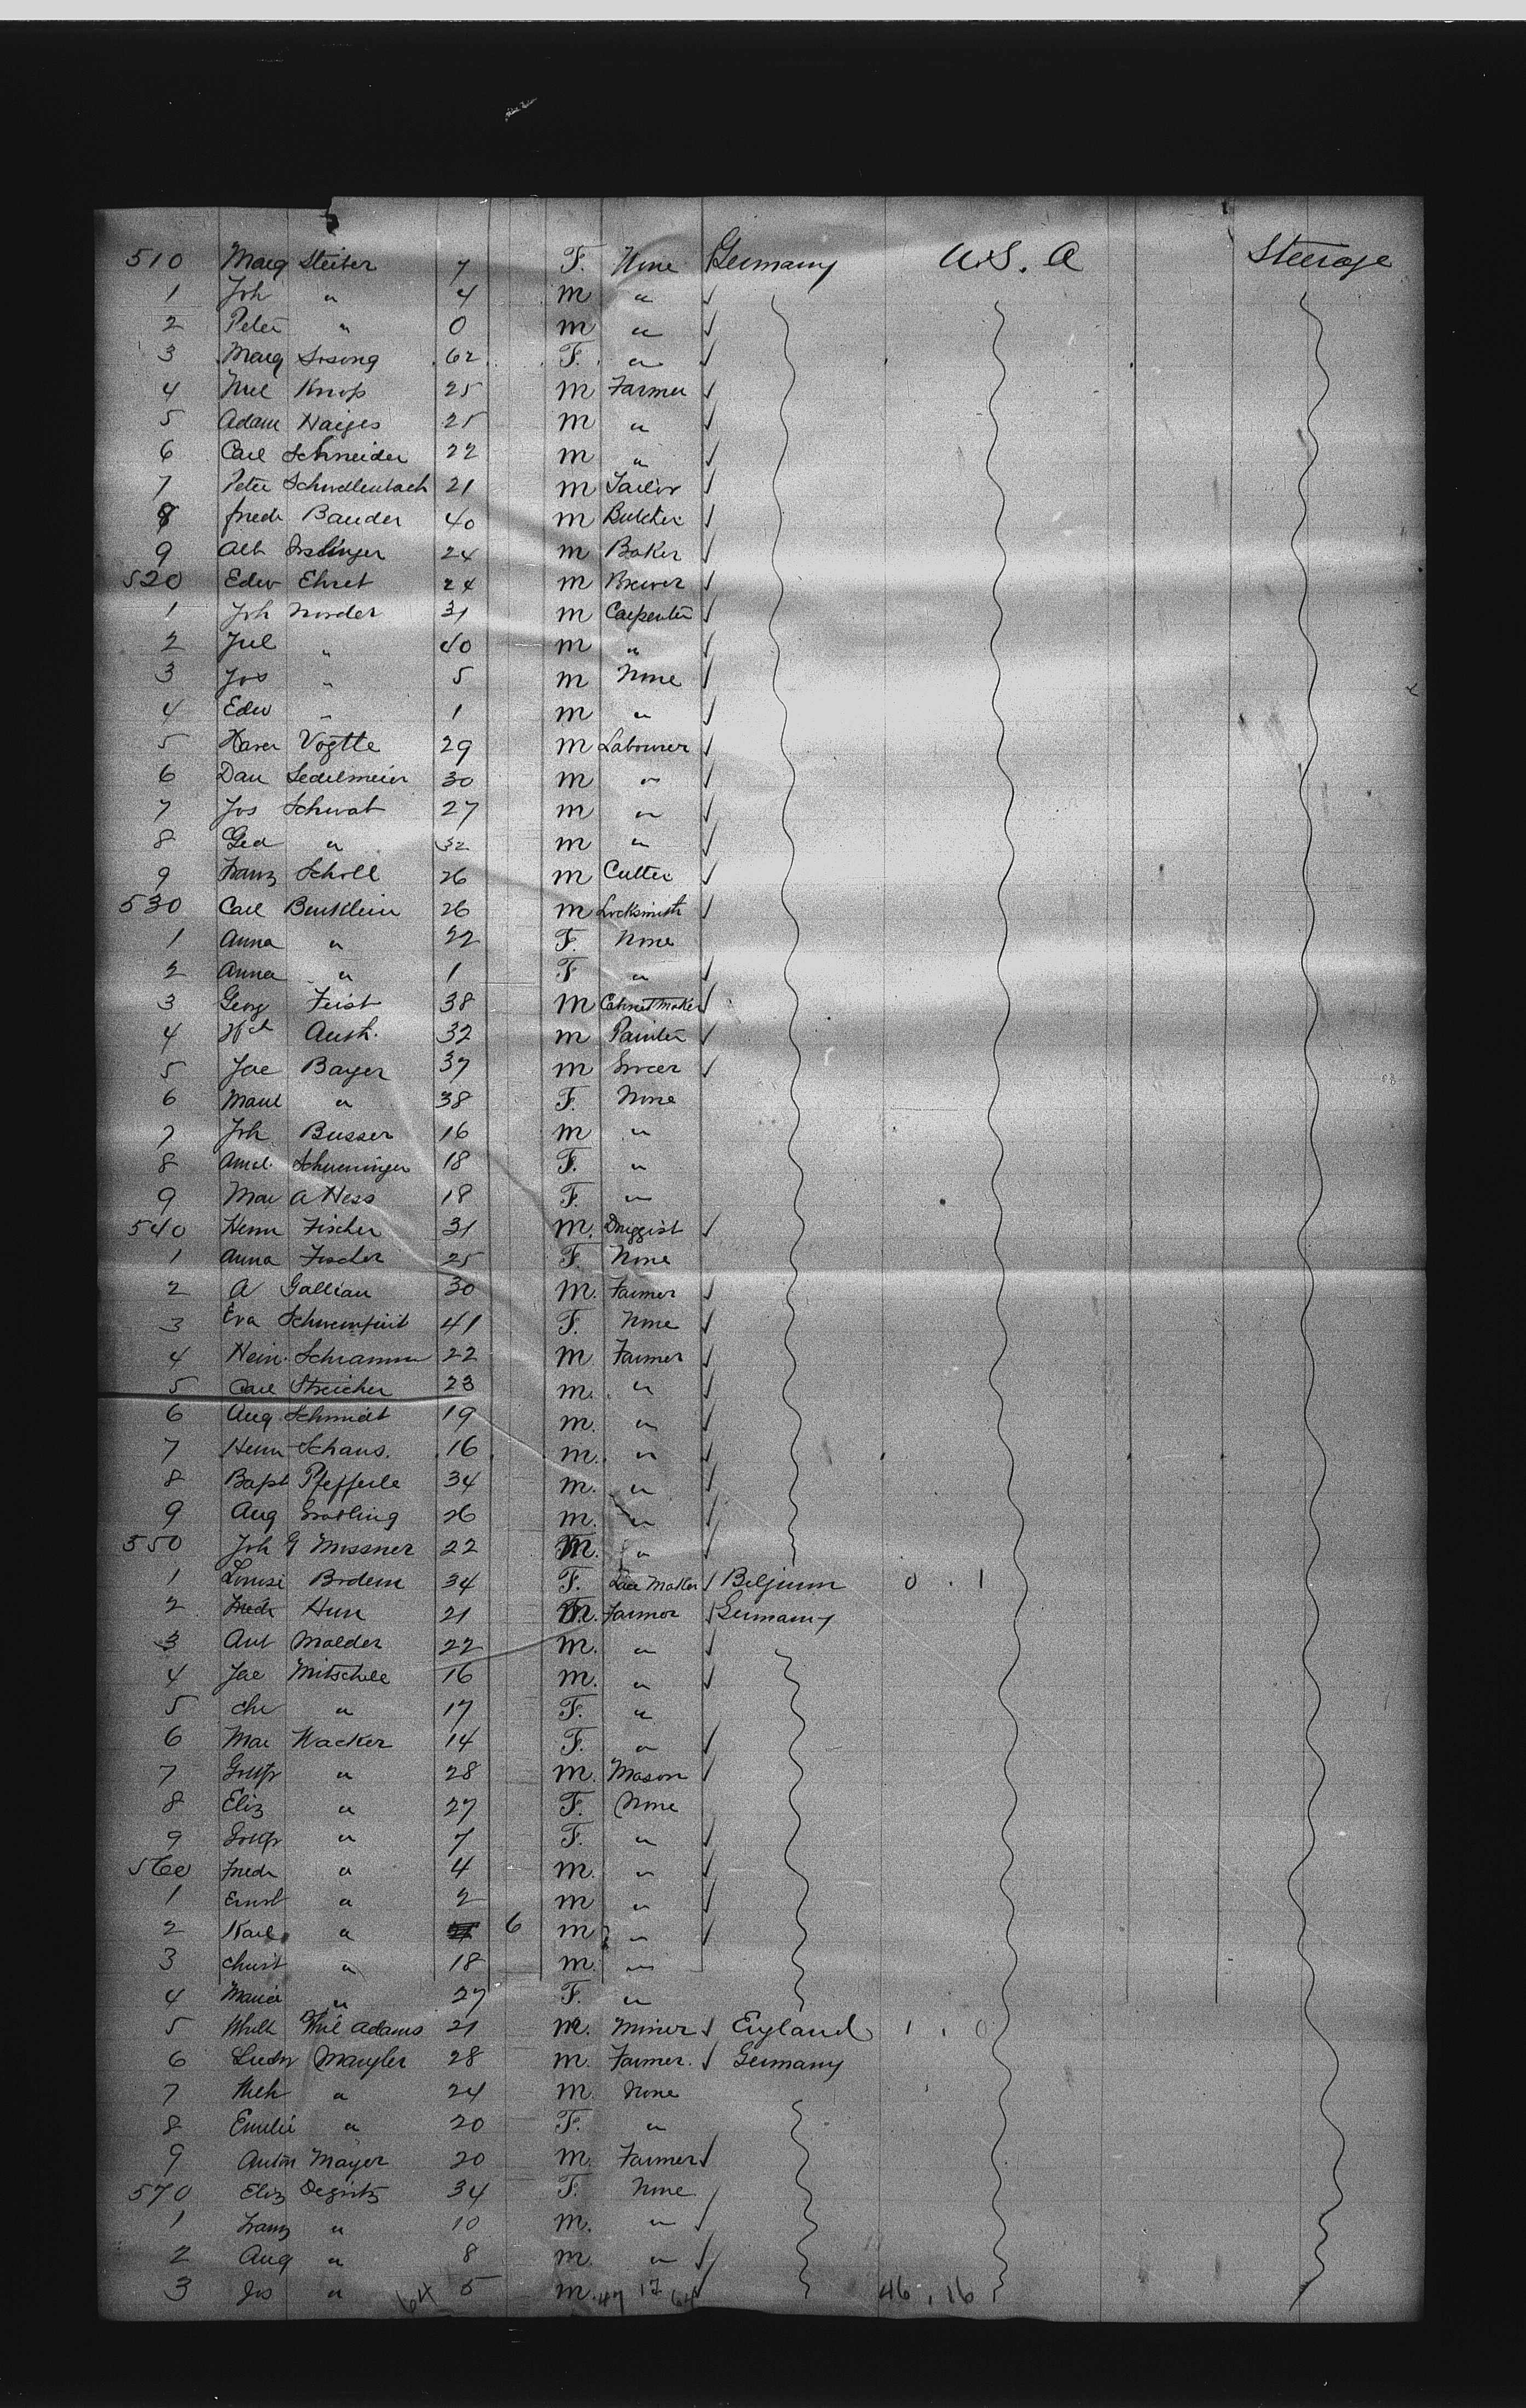 510 Marg Steiber 7 F. None Germany U.S.A Steerage
1 Joh " 4 m "
2 Peter " 0 m "
3 Marg 62 F. "
4 Knop 25 m Farmer
5 Adam Haiges 25 m "
6 Carl Schneider 22 m "
7 Peter Schwellenbach 21 m Tailor
8 Friedr Bauder 40 m Butcher
9 Alb Isslinger 24 m Baker
520 Edw Ehret 24 m Brewer
1 Joh Norder 31 m Carpenter
2 Jul " 40 m "
3 Jos " 5 m None
4 Edw " 1 m "
5 Xaver Vogtle 29 m Labourer
6 Dan Sedelmeier 30 m "
7 Jos Schwab 27 m "
8 Geo " 32 m "
9 Franz Scholl 26 m Cutter
530 Carl Benklein 26 m Locksmith
1 Anna " 22 F. None
2 Anna " 1 F "
3 Georg Feist 38 m Cabinetmaker
4 Auth. 32 m Painter
5 Jac Bayer 37 m Grocer
6 " 38 F. None
7 Joh Busser 16 m "
8 Amal. Schwenninger 18 F. "
9 Mar A Hess 18 F. "
540 Henr Fischer 31 m. Druggist
1 Anna Fischer 25 F. None
2 A Gallian 30 m. Farmer
3 Eva 41 F. None
4 Hein. Schramm 22 m Farmer
5 Carl Streicher 23 m. "
6 Aug Schmidt 19 m. "
7 Henr Schaus. 16 m. "
8 Bapt Pfefferle 34 m. "
9 Aug 26 m. "
550 Joh G Missner 22 m. "
1 Louise Brodem 34 F. Lace Maker Belgium 0 . 1
2 Friedr Hun 21 m. Farmer Germany
3 Ant Malder 22 m. "
4 Jac Mitschele 16 m. "
5 Chr " 17 F. "
6 Mar Wacker 14 F. "
7 Gottfr " 28 m. Mason
8 Eliz " 27 F. None
9 Gottfr " 7 F. "
560 Friedr " 4 m. "
1 Ernst " 2 m "
2 Karl " 6 m "
3 Christ " 18 m. "
4 Maria " 27 F. "
5 Adams 21 m. Miner England 1 . 0
6 Ludw Mangler 28 m. Farmer. Germany
7 " 24 m. None
8 Emilie " 20 F. "
9 Anton Mayer 20 m. Farmer
570 Eliz Degintz 34 F. None
1 Franz " 10 m. "
2 Aug " 8 m. "
3 Jos " 64 5 m. 47 17 64 46 . 16